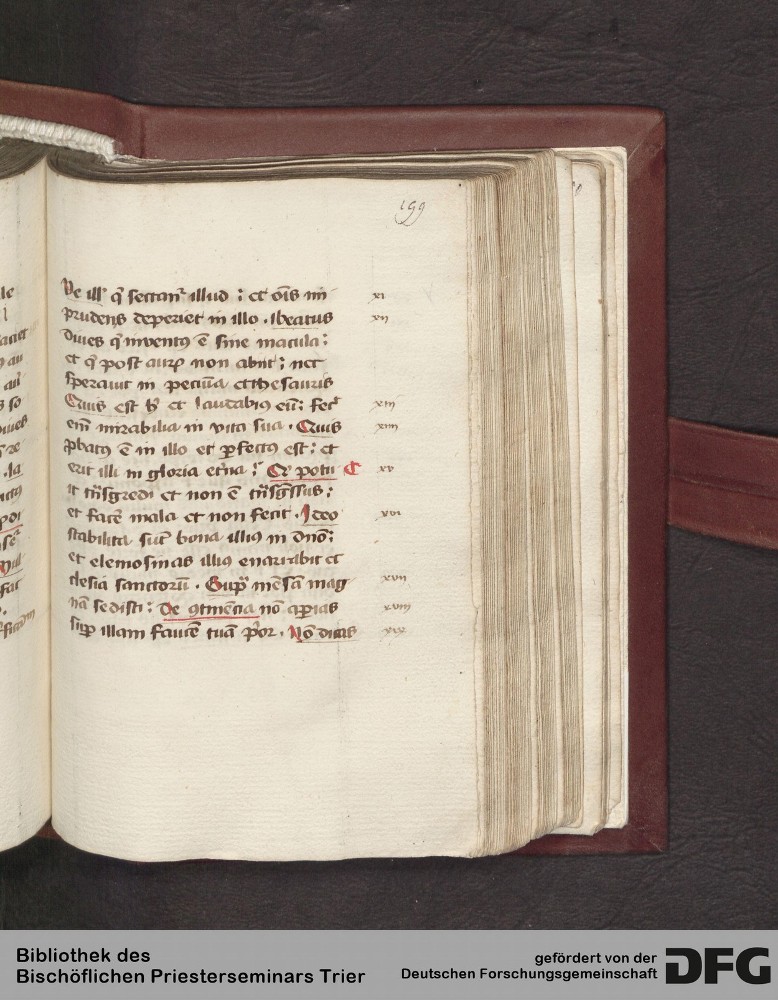 199
Ve ill' q̇ sectant' illud : et om̄s im xi
prudens deperiet in illo . Beatus xii
diues q̇ inuentꝰ ē sine macula :
et q̇ post aurꝫ non abiit ; nec
sperauit in pecūia et thesauris
Quis est h' et laudabimꝰ eū : fec' xiii
em̄ mirabilia in vita sua . Quis xiiii
ꝓbatꝰ ē in illo et ꝑfectꝰ est : et
erit illi in gloria et̄na : Qͥ potu xv
it tn̄sgredi et non ē tn̄sg̃ssus :
et facē mala et non fecit . Ideo xvi
stabilita sūt bona illiꝰ in dn̄o :
et elemosinas illiꝰ enarrabit ec
clesia sanctorū . Supͣ mēsā mag xvii
nā sedisti : De ꝯtinēcia nō aꝑias xviii
suꝑ illam faucē tuā p̄or . Nō dicas xix
Bibliothek des
Bischöflichen Priesterseminars Trier
gefördert von der
Deutschen Forschungsgemeinschaft
DFG